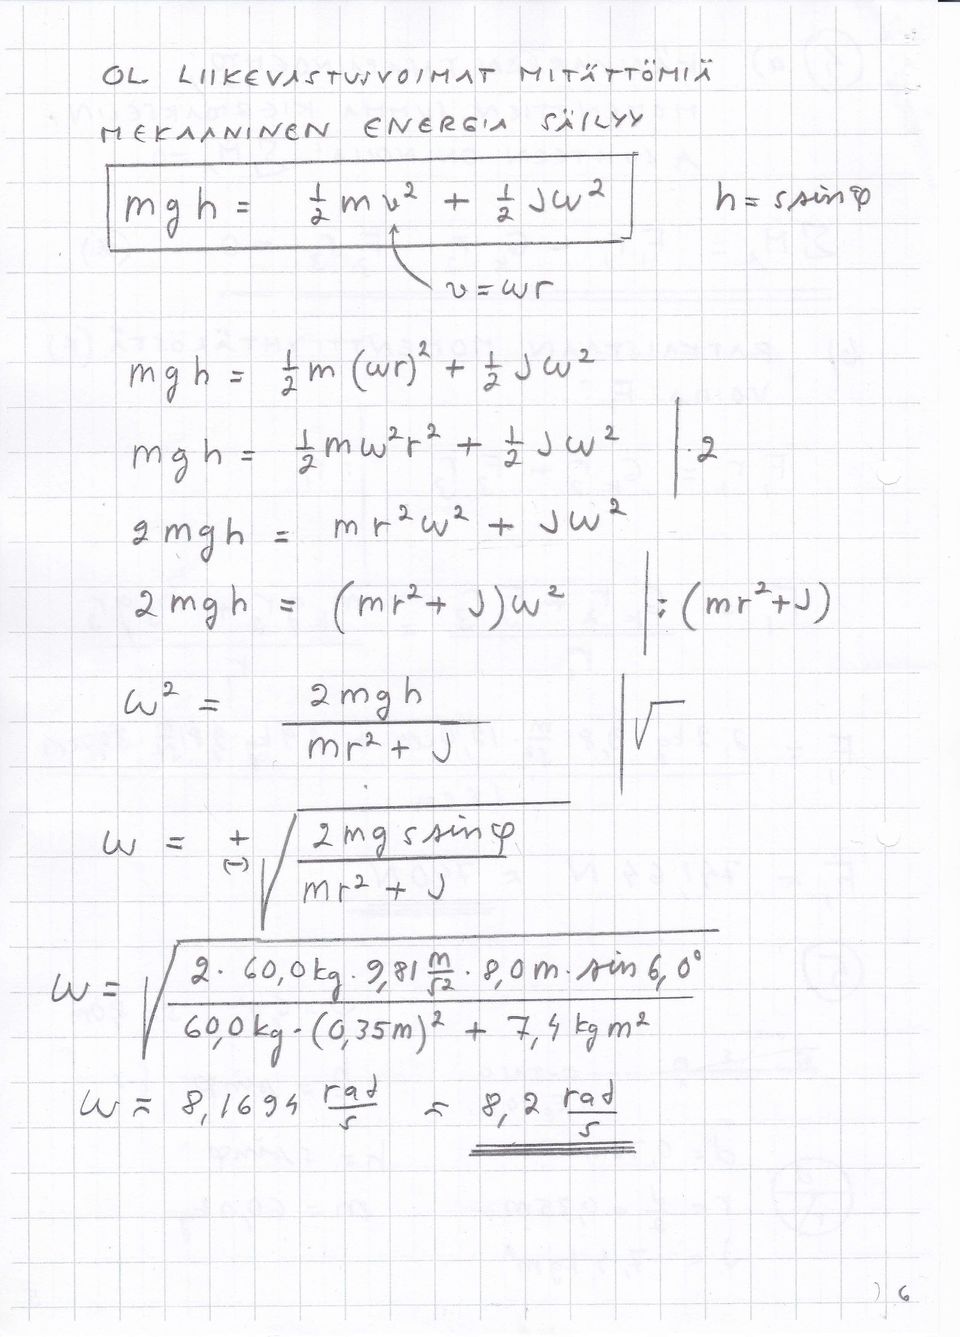 OL. LIIKEVASTUSVOIMAT MITÄTTÖMIÄ
MEKAANINEN ENERGIA SÄILYY
mgh = ½mv² + ½Jω²    h = s sinφ
v = ωr
mgh = ½m(ωr)² + ½Jω²
mgh = ½mω²r² + ½Jω²  | ·2
2mgh = mr²ω² + Jω²
2mgh = (mr² + J)ω²  | : (mr² + J)
ω² = 2mgh / (mr² + J)  | √
ω = +(−) √(2mg s sinφ / (mr² + J))
ω = √(2 · 60,0 kg · 9,81 m/s² · 8,0 m · sin 6,0° / (60,0 kg · (0,35 m)² + 7,4 kgm²))
ω = 8,1694 rad/s = 8,2 rad/s
) 6